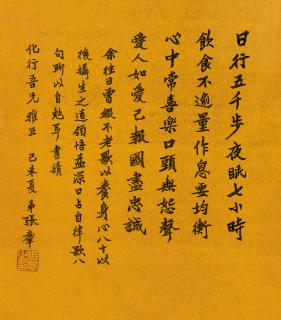 日行五千步夜眠七小時
飲食不逾量作息要均衡
心中常喜樂口頭無怨聲
愛人如愛己報國盡忠誠
余往日曾綴不老歌以養身心八十以
後攝生之道領悟益深口占自律歌八
句聊以自勉耳書請
化行吾兄雅正 己未夏弟張群